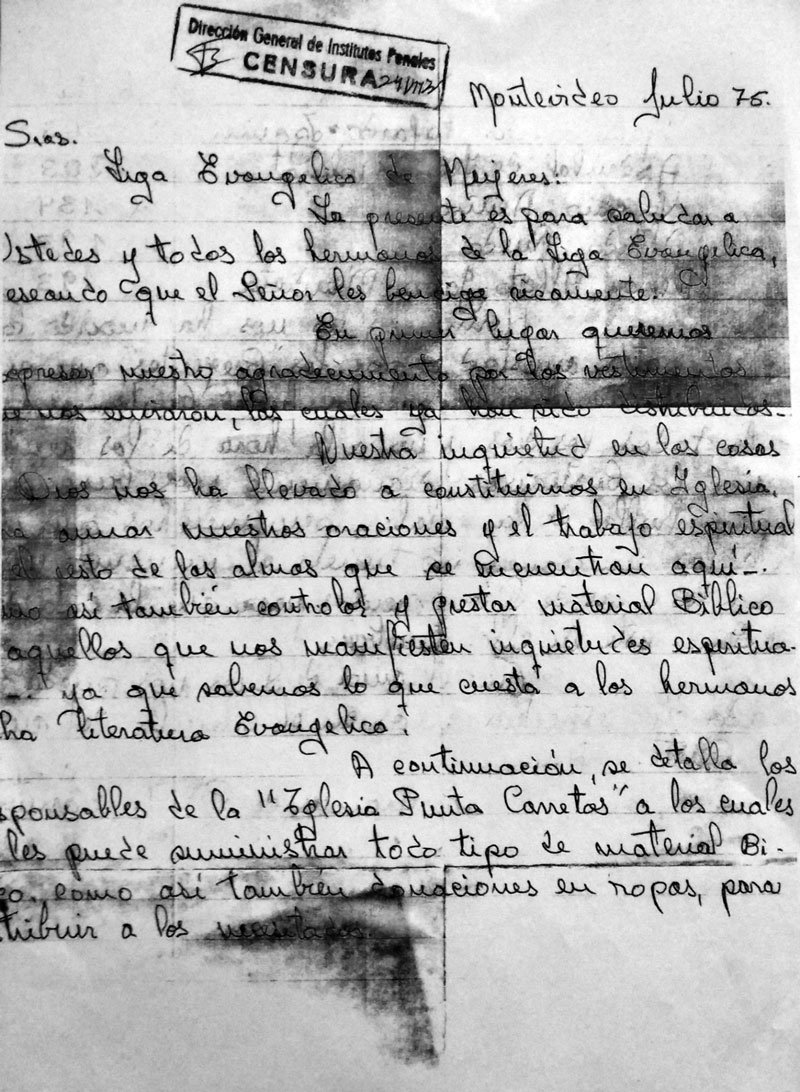 Dirección General de Institutos Penales
CENSURA
Montevideo Julio 75.
Sras.
Liga Evangelica de Mujeres:
La presente es para saludar a
Ustedes y todos los hermanos de la Liga Evangelica,
eseando que el Señor les bendiga ricamente.
En primer lugar queremos
xpresar nuestro agradecimiento por los vestimentos
e nos enviaron, las cuales ya han sido distribuidos.
Nuestra inquietud en las cosas
Dios nos ha llevado a constituirnos en Iglesia,
ra aunar nuestros oraciones y el trabajo espiritual
el resto de las almas que se encuentran aquí-.
mo así también controlar y prestar material Bíblico
aquellos que nos manifiesten inquietudes espiritua-
ya que sabemos lo que cuesta a los hermanos
ha literatura Evangelica.
A continuación, se detalla los
sponsables de la "Iglesia Punta Carretas" a los cuales
les puede suministrar todo tipo de material Bi-
co, como así también donaciones en ropas, para
tribuir a los necesitados.